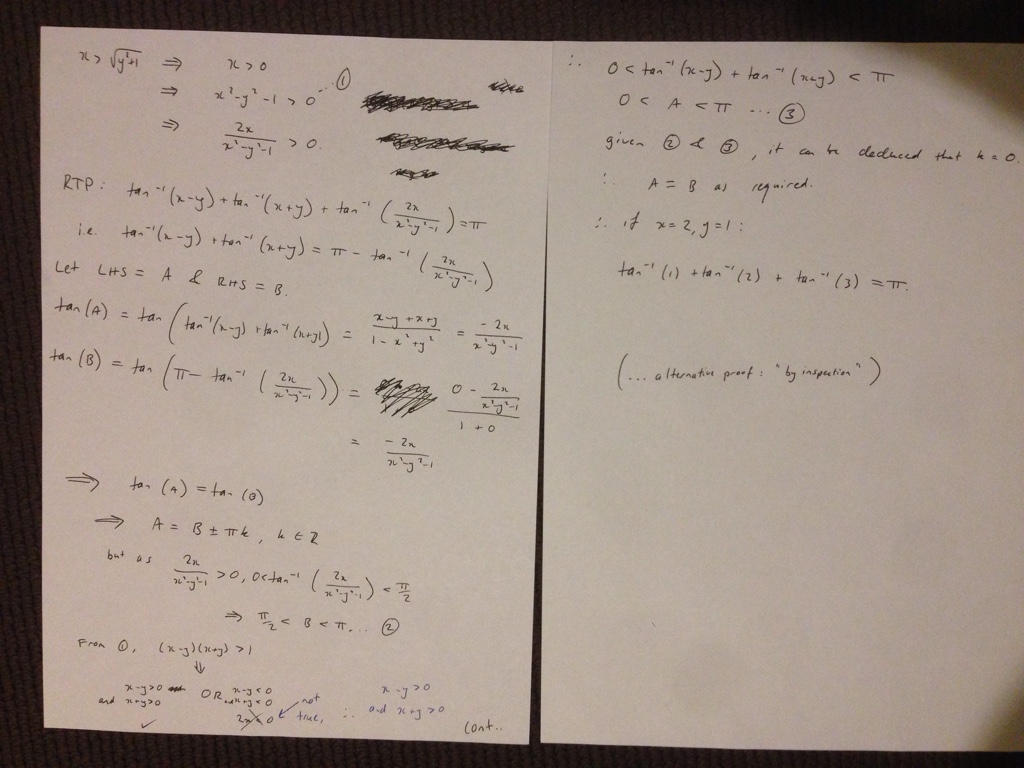 x > √(y²+1) ⇒ x > 0
⇒ x²-y²-1 > 0 ... ①
⇒ 2x/(x²-y²-1) > 0.
RTP: tan⁻¹(x-y) + tan⁻¹(x+y) + tan⁻¹(2x/(x²-y²-1)) = π
i.e. tan⁻¹(x-y) + tan⁻¹(x+y) = π - tan⁻¹(2x/(x²-y²-1))
Let LHS = A & RHS = B.
tan(A) = tan(tan⁻¹(x-y) + tan⁻¹(x+y)) = (x-y+x+y)/(1-x²+y²) = -2x/(x²-y²-1)
tan(B) = tan(π - tan⁻¹(2x/(x²-y²-1))) = (0 - 2x/(x²-y²-1))/(1+0)
= -2x/(x²-y²-1)
⇒ tan(A) = tan(B)
⇒ A = B ± πk, k ∈ ℤ
but as 2x/(x²-y²-1) > 0, 0 < tan⁻¹(2x/(x²-y²-1)) < π/2
⇒ π/2 < B < π ... ②
From ①, (x-y)(x+y) > 1
⇓
x-y > 0 OR x-y < 0 not x-y > 0
and x+y > 0 and x+y < 0 true, ∴ and x+y > 0
✓ 2x < 0
cont..
∴ 0 < tan⁻¹(x-y) + tan⁻¹(x+y) < π
0 < A < π ... ③
given ② & ③, it can be deduced that k = 0.
∴ A = B as required.
∴ if x=2, y=1:
tan⁻¹(1) + tan⁻¹(2) + tan⁻¹(3) = π.
(... alternative proof: "by inspection")